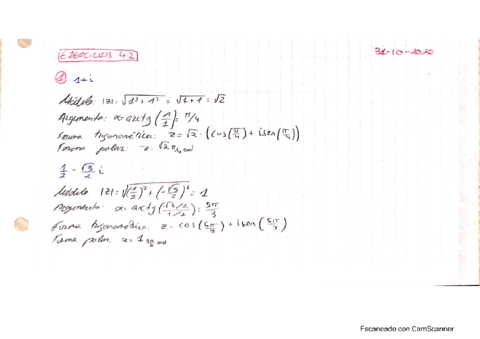 EJERCICIOS 4.2
31-10-2020
① 1+i
Módulo: |z| = √(1² + 1²) = √(1+1) = √2
Argumento: α = arctg (1/1) = π/4
Forma trigonométrica: z = √2 · (cos(π/4) + i sen(π/4))
Forma polar: z = √2 π/4 rad
1/2 - √3/2 i
Módulo |z| = √((1/2)² + (-√3/2)²) = 1
Argumento: α = arctg (-√3/2 / 1/2) = 5π/3
Forma trigonométrica: z = cos(5π/3) + i sen(5π/3)
Forma polar z = 1 5π/3 rad
Escaneado con CamScanner